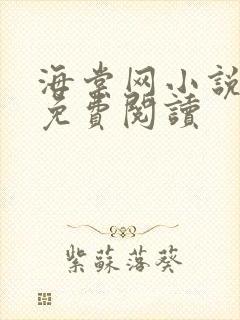 海棠网小說
免費閱讀
紫蘇落葵